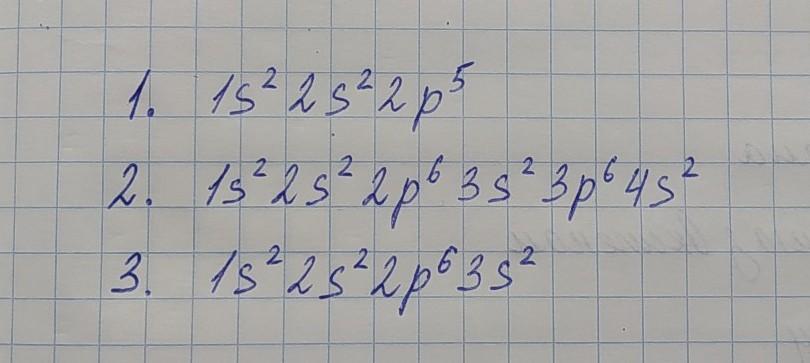 1. 1s² 2s² 2p⁵
2. 1s² 2s² 2p⁶ 3s² 3p⁶ 4s²
3. 1s² 2s² 2p⁶ 3s²